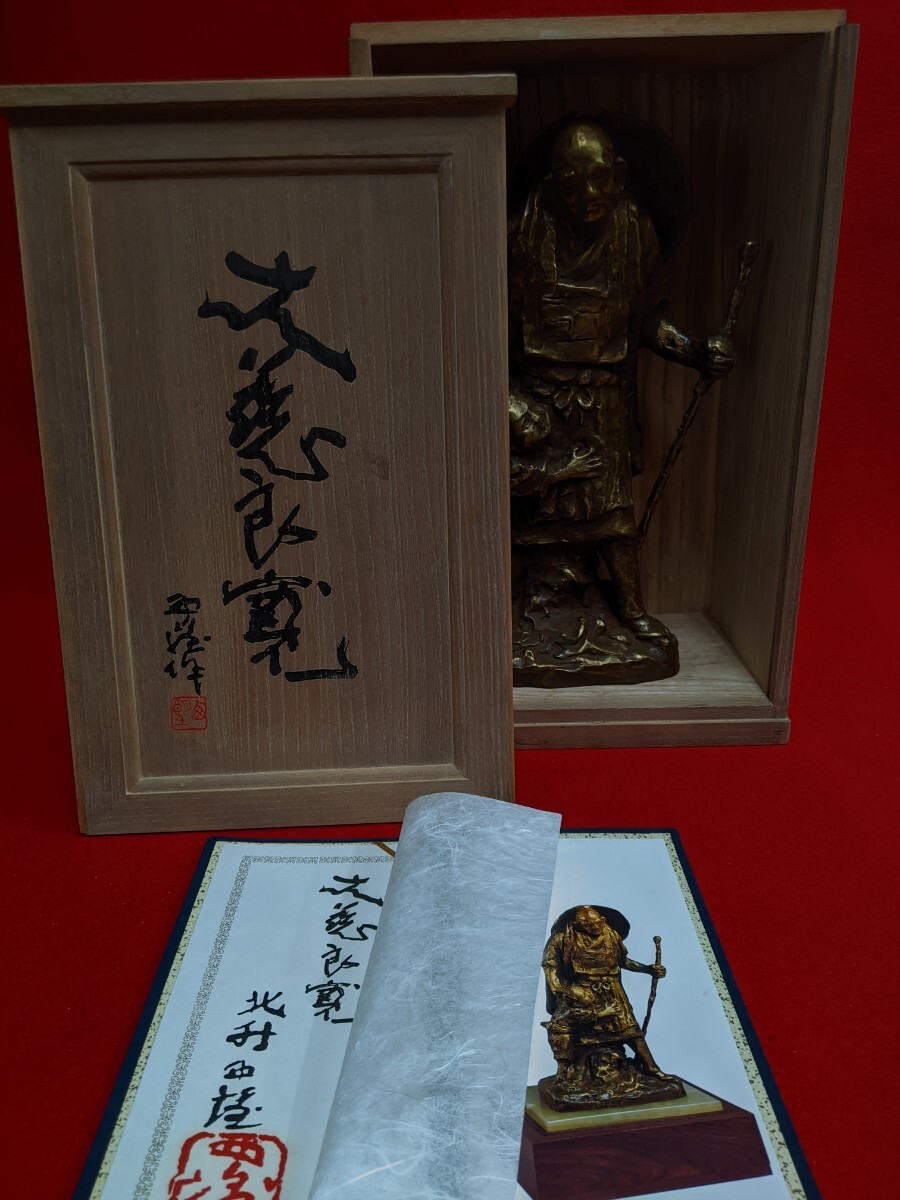 大慈良寛
西望作
大慈良寛
北村西望